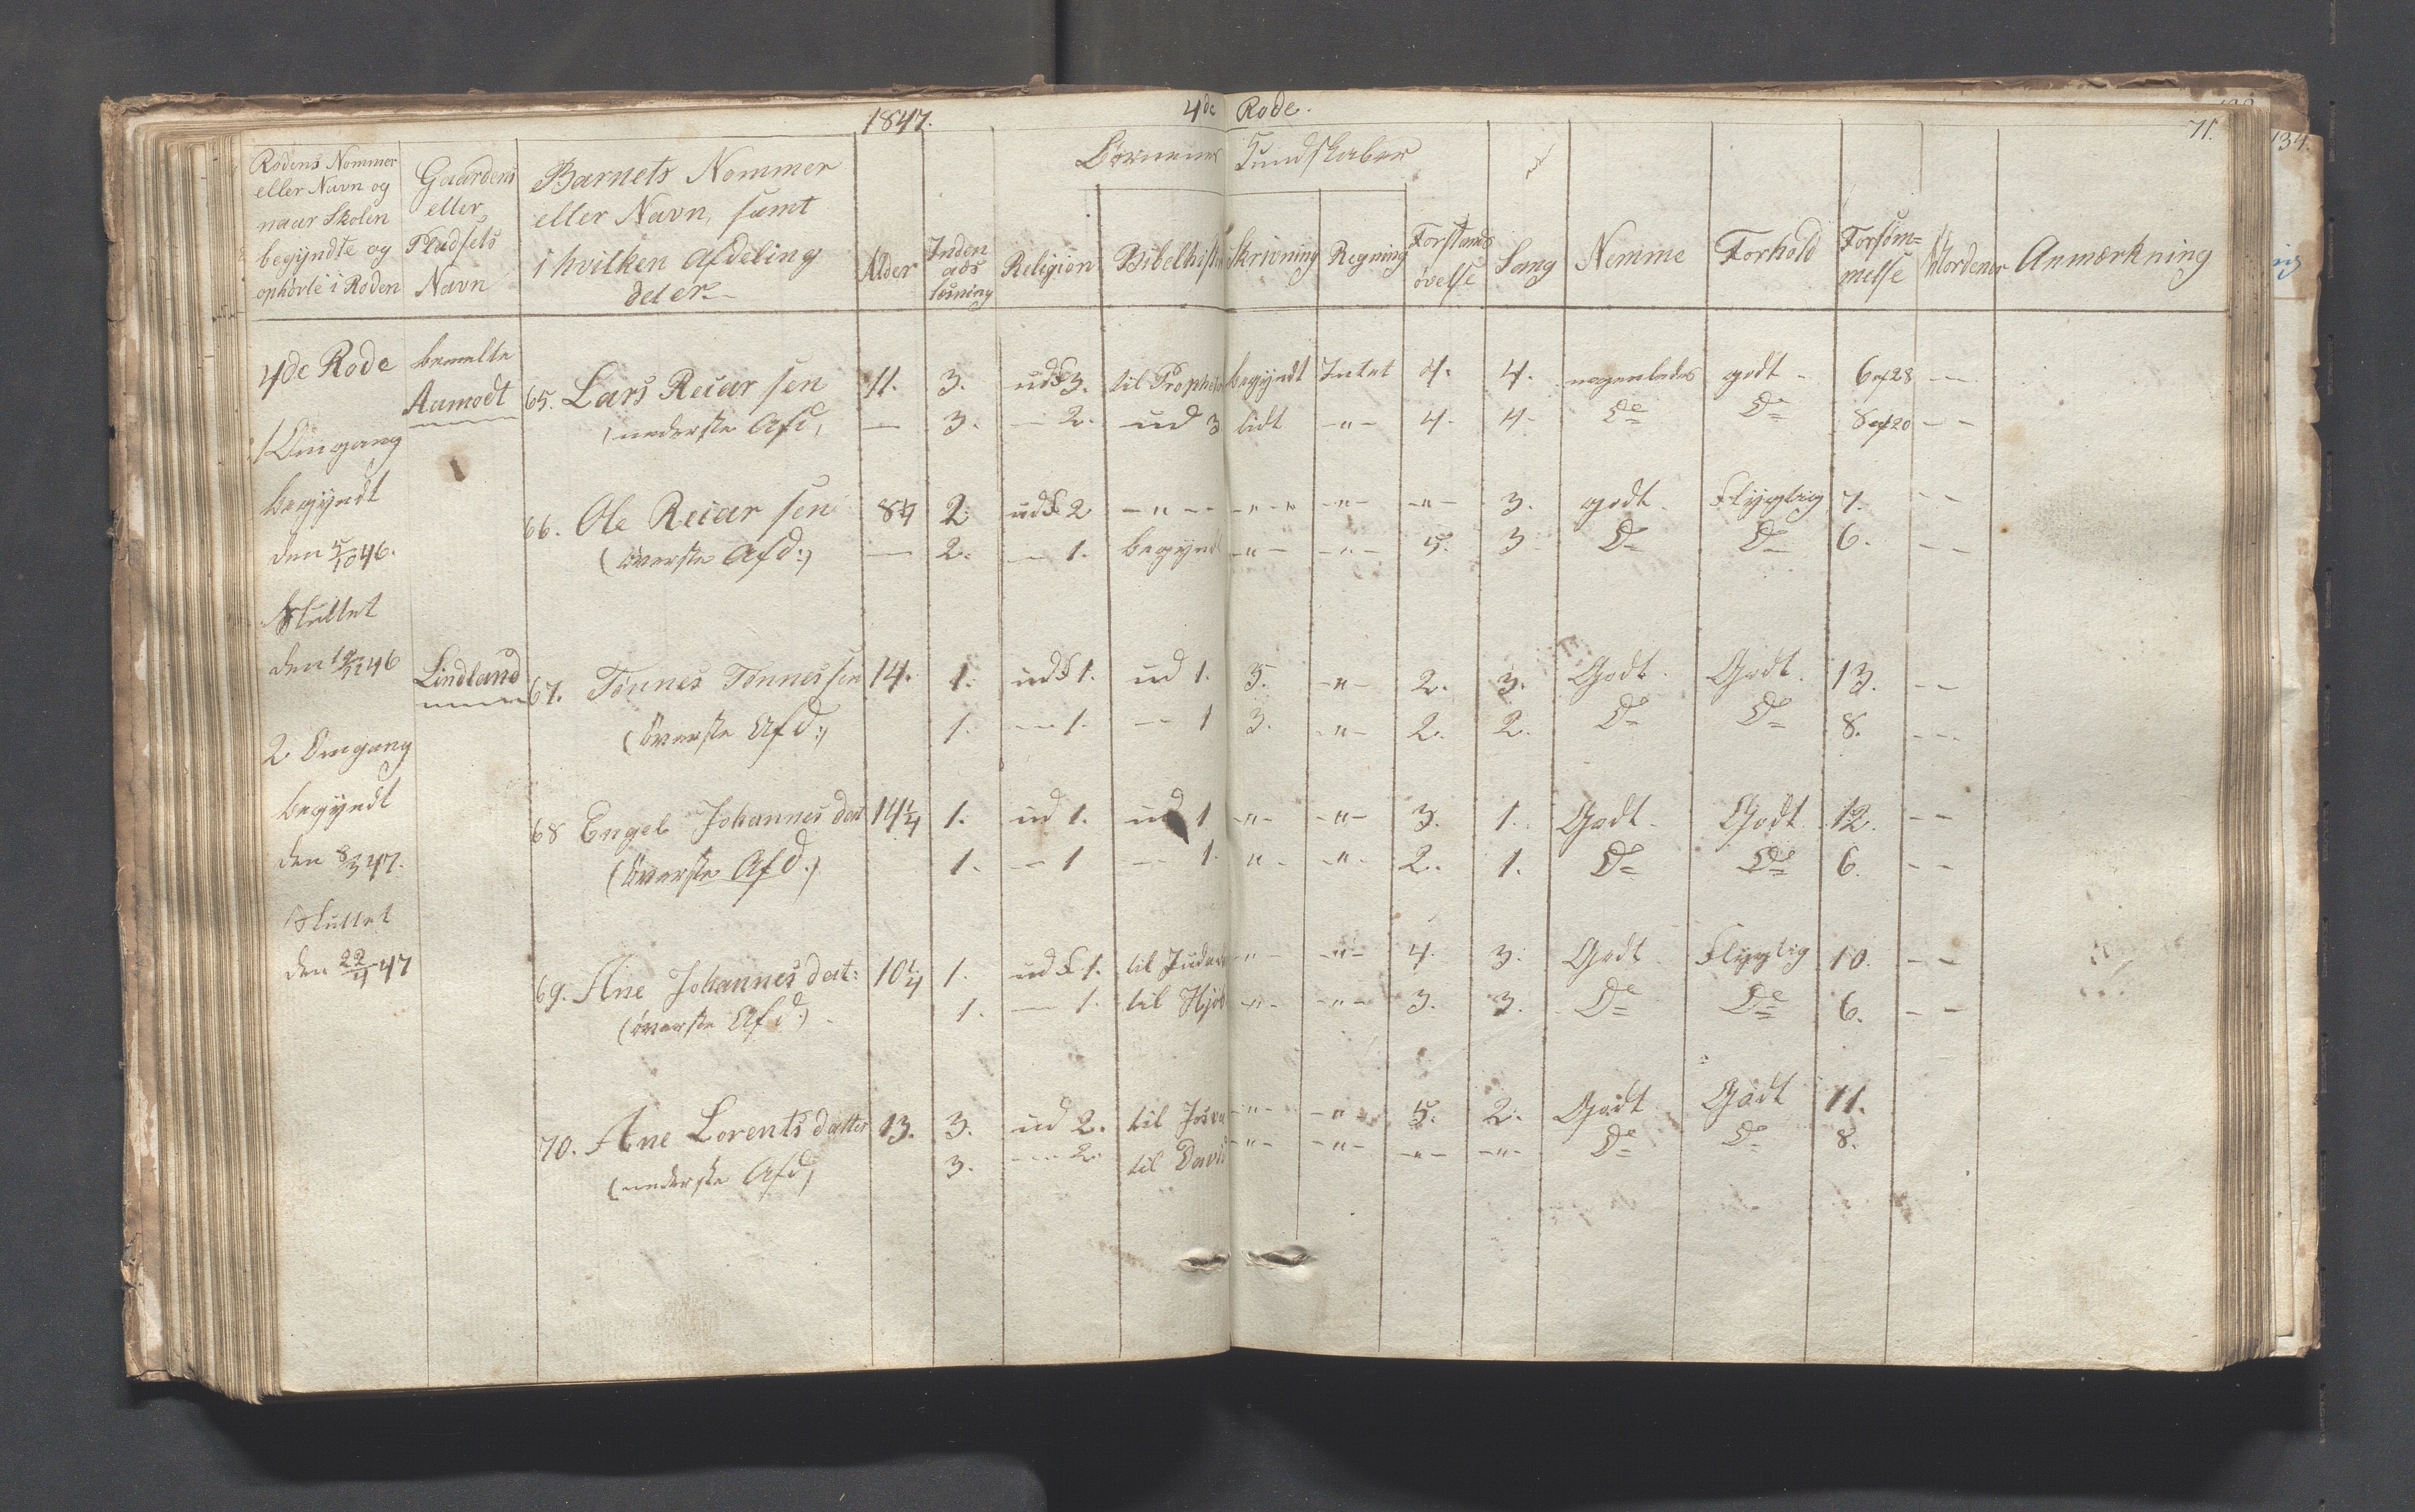 1847. 4de Rode. 71.
134.
Rodens Nommer eller Navn og naar Skolen begyndte og ophørte i Roden
Gaardens eller Pladsets Navn
Barnets Nommer eller Navn, samt i hvilken Afdeling det er.
Alder
Inden ads læsning
Børnenes Kundskaber
Religion
Bibelhist
Skrivning
Regning
Forstands øvelse
Sang
Nemme
Forhold
Forsøm= melse
Anmærkning
4de Rode
1 Omgang
begyndt
den 5/10 46.
Sluttet
den 46
2 Omgang
begyndt
den 8/3 47.
Sluttet
den 22/4 47
bemelte
Aamodt
65. Lars Reiarsen 11. 3. ud 3. til Prophet begyndt Intet 4. 4. nogenledes godt - 6 af 28 - -
(nederste Afd, — 3. - 2. - ud 3 lidt -"- 4. 4- Do Do 8 af 20 - -
66. Ole Reiarsen 8 2. ud 2 -"-- -"-" -"- -"- 3. godt. Flygtig 7. - -
(øverste Afd:) — 2. - 1. begyndt -"- -"- 5. 3 Do Do 6. - -
Lindland
67. Tønnes Tønnessen 14. 1. ud 1. ud 1. 3. -"- 2. 3. Godt. Godt. 13. - -
(øverste Afd:) 1. - 1. - 1 3. -"- 2. 2. Do Do 8. - -
68 Engel Johannesdat 14 1/4 1. ud 1. ud 1 -"- -"- 3. 1. Godt. Godt 12. - -
(øverste Afd:) 1. - 1 - 1. "- -"- 2. 1. Do Do 6. - -
69. Ane Johannesdat: 10 1/4 1. ud 1. til -"- -"- 4. 3. Godt Flygtig 10. - -
(øverste Afd:) 1. - 1. til -"- -"- 3. 3. Do Do 6. - -
70. Ane Lorentsdatter 13. 3. ud 2. til Josva -"- -"- 5. 2. Godt Godt 11.
(nederste Afd,) 3. - 2. til David -"- -"- -"- -"- Do Do 8.